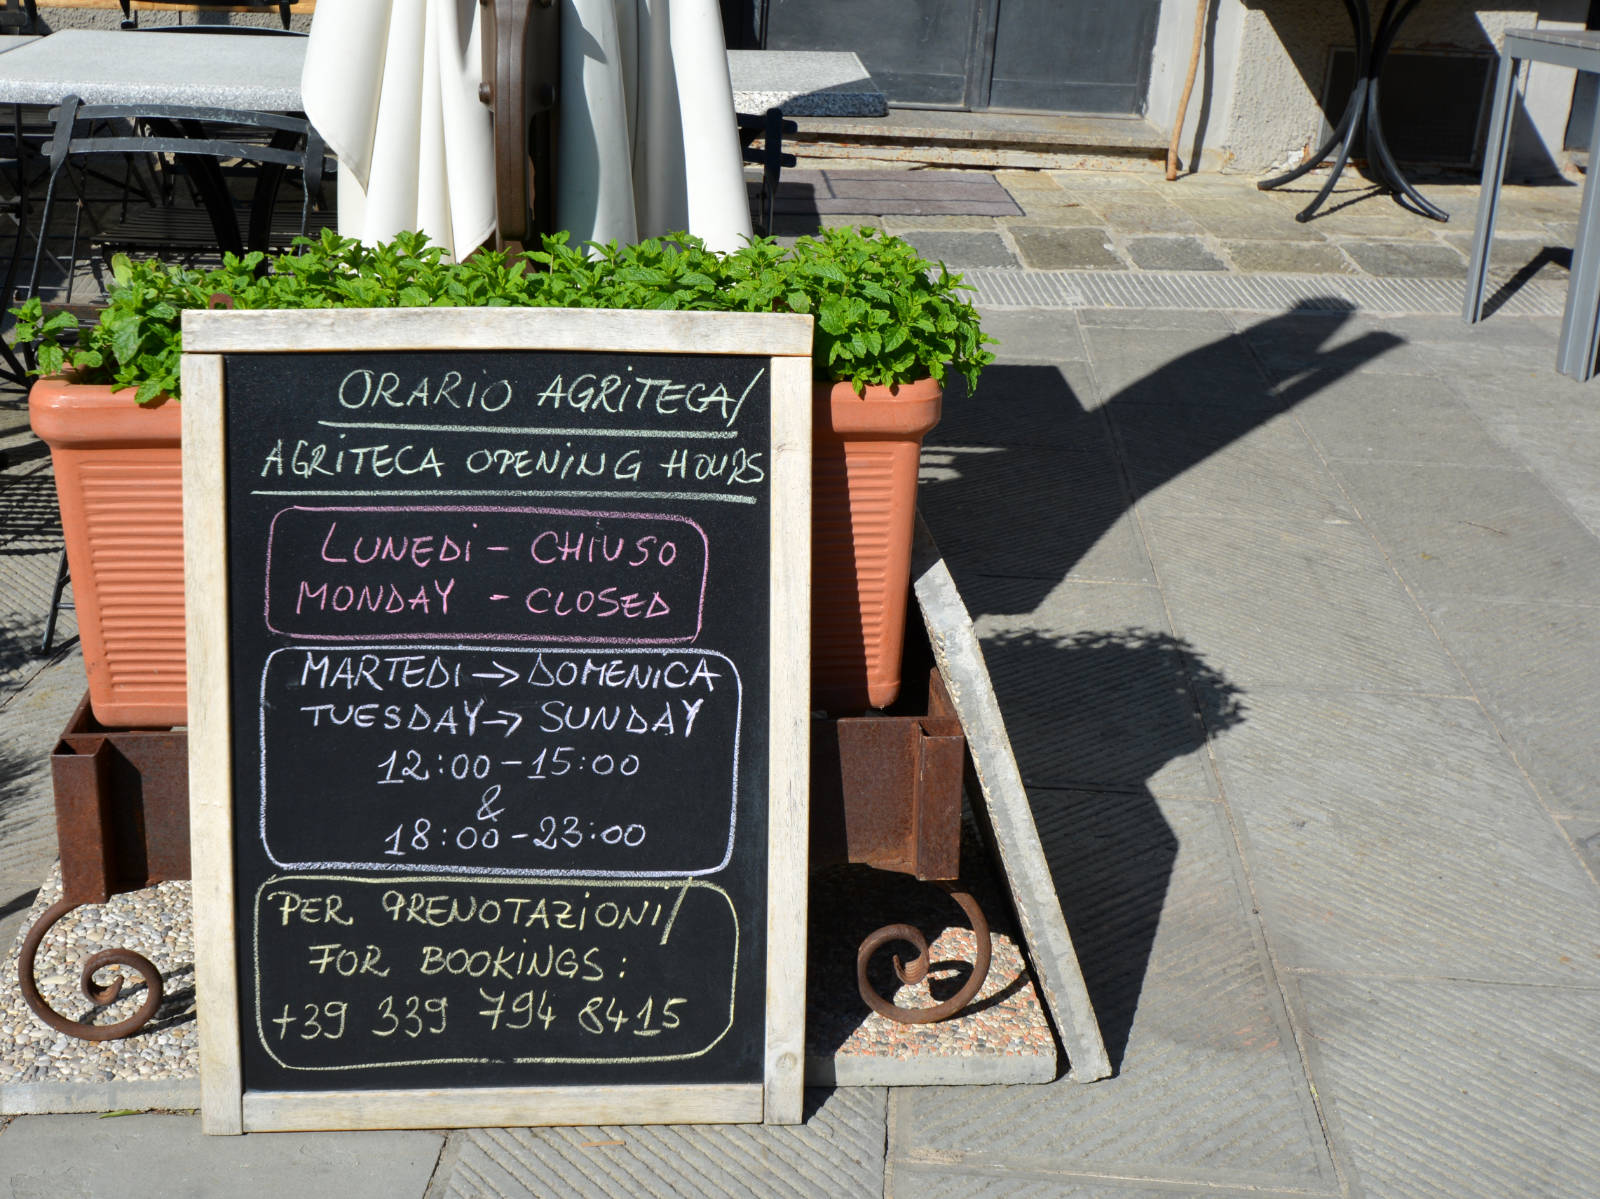 ORARIO AGRITECA/
AGRITECA OPENING HOURS
LUNEDI - CHIUSO
MONDAY - CLOSED
MARTEDI → DOMENICA
TUESDAY → SUNDAY
12:00 - 15:00
&
18:00 - 23:00
PER PRENOTAZIONI/
FOR BOOKINGS:
+39 339 794 8415